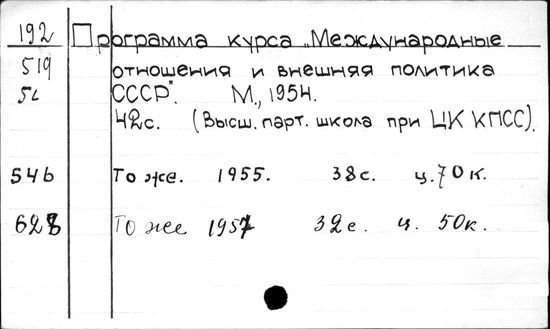 192 Программа курса „Международные
519 отношения и внешняя политика
5L СССР". М., 1954.
42с. (Высш. парт. школа при ЦК КПСС).
546 То же. 1955. 38с. ц. 70к.
628 То же 1957 32с. ц. 50к.